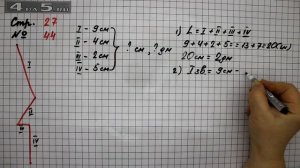 4APS.RU
Стр. 27
№ 44
I
II
III
IV
I - 9 см
II - 4 см
III - 2 см
IV - 5 см
? см, ? дм
1) L = I + II + III + IV
9+4+2+5=13+7=20(см)
20 см = 2 дм
2) I зв. = 9 см -